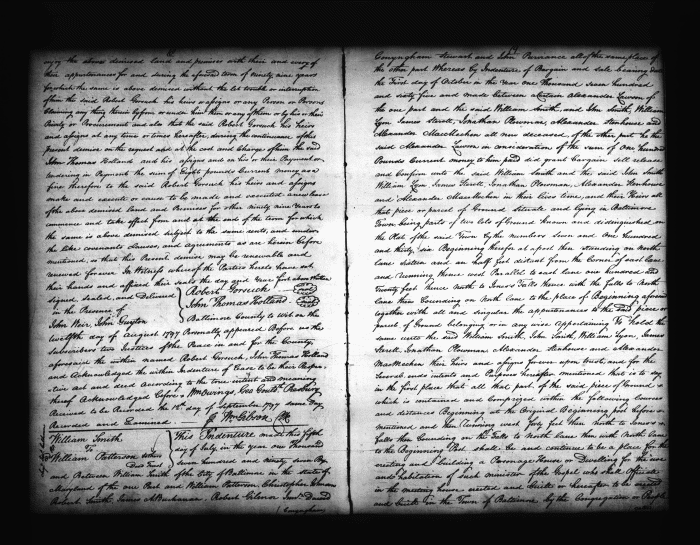 enjoy the above demised land and premises with their and every of
their appurtenances for and during the aforesaid term of ninety nine years
for which the same is above demised without the let trouble or interruption
of him the said Robert Gorsuch his heirs or assigns or any Person or Persons
Claiming any thing therein by from or under him them or any of them or by his or their
Privity or Procurement and also that the said Robert Gorsuch his heirs
and assigns at any time or times hereafter, during the continuance of this
present demise on the request and at the cost and Charge of him the said
John Thomas Holland and his assigns and on his or their Payment or
tendering in Payment the sum of Eight pounds Current money as a
fine therefor to the said Robert Gorsuch his heirs and assigns
make and execute or cause to be made and executed a new lease
of the above demised land and premises for other ninety nine Years to
commence and take effect from and at the end of the term for which
the same is above demised subject to the same rents, and under
the like covenants clauses, and agreements as are herein before
mentioned, so that this Present demise may be renewable and
renewed forever In Witness whereof the Parties hereto have set
their hands and affixed their seals the day and Year first above written
signed, sealed, and Delivered
in the Presence of
John Weir, John Guyton
Robert Gorsuch
John Thomas Holland
Baltimore County to wit on the
twelfth day of August 1797 Personally appeared Before us the
Subscribers two Justices of the Peace in and for the County,
aforesaid the within named Robert Gorsuch, John Thomas Holland
and Acknowledged the within Indenture of Lease to be their Respec
tive act and deed according to the true intent and meaning
thereof Acknowledged Before,
Received to be Recorded the 16th day of September 1797 same day
Recorded and Examined
Wm Gibson Clk
William Smith
To
William Patterson & others
Deed Trust
This Indenture made this fifth
day of July in the year one Thousand
seven hundred and ninety seven By
and Between William Smith of the City of Baltimore in the state of
Maryland of the one Part and William Patterson, Christopher Johnson
Robert Smith, James A Buchanan, Robert Gilmor Junr David
Conyngham
Conyngham Stewart and John Purviance all of the same place of
the other part Whereas by Indenture of Bargain and sale bearing date
the First day of October in the Year one Thousand Seven hundred
and sixty five and made between Alexander Lawson of
the one part and the said William Smith, and John Smith William
Lyon James Sterett, Jonathan Plowman, Alexander Stenhouse and
Alexander MacMachen all now deceased, of the other part he the
said Alexander Lawson in consideration of the sum of one hundred
Pounds Current money to him paid did grant Bargain sell release
and Confirm unto the said William Smith and the said John Smith
William Lyon James Sterett, Jonathan Plowman, Alexander Stenhouse
and Alexander MacMachen in their lives time, and their Heirs all
that piece or parcel of Ground situate and lying in Baltimore
Town being part of two lots of Ground Known and distinguished on
the Plat of the said Town by the numbers Seven and One hundred
and thirty, six Beginning therefor at a post then standing on North
Lane sixteen and an half feet distant from the Corner of east Lane
and Running thence west Parallel to east Lane one hundred and
twenty feet thence north to Jones's Falls thence with the Falls to North
Lane then bounding on North Lane to the place of Beginning aforesaid
together with all and singular the appurtenances to the said piece or
parcel of Ground belonging or in any wise Appertaining To hold the
same unto the said William Smith, John Smith, William Lyon, James
Sterett, Jonathan Plowman, Alexander Stenhouse and Alexander
MacMachen their Heirs and assigns forever upon trust, and for the
several uses intents and Purposes hereafter mentioned that is to say
in the first place that all that part of the said piece of Ground
which is contained and comprized within the following Courses
and distances Beginning at the Original Beginning post before
mentioned and then Running west forty feet then North to Jones's
Falls then bounding on the Falls to North Lane then with North Lane
to the Beginning Post shall be and continue to be a place for the
erecting and building a Parsonage house or Dwelling for the use
and habitation of such minister of the Gospel who shall Officiate
in the meeting house erected and built or hereafter to be erected
and built in the Town of Baltimore by the Congregation or People